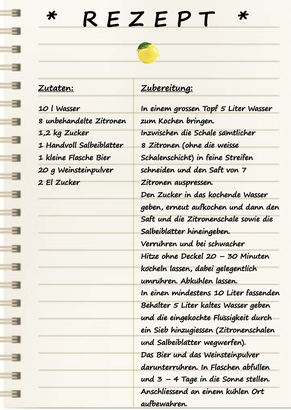 * REZEPT *
Zutaten:
10 l Wasser
8 unbehandelte Zitronen
1,2 kg Zucker
1 Handvoll Salbeiblätter
1 kleine Flasche Bier
20 g Weinsteinpulver
2 El Zucker
Zubereitung:
In einem grossen Topf 5 Liter Wasser
zum Kochen bringen.
Inzwischen die Schale sämtlicher
8 Zitronen (ohne die weisse
Schalenschicht) in feine Streifen
schneiden und den Saft von 7
Zitronen auspressen.
Den Zucker in das kochende Wasser
geben, erneut aufkochen und dann den
Saft und die Zitronenschale sowie die
Salbeiblätter hineingeben.
Verrühren und bei schwacher
Hitze ohne Deckel 20 – 30 Minuten
köcheln lassen, dabei gelegentlich
umrühren. Abkühlen lassen.
In einen mindestens 10 Liter fassenden
Behälter 5 Liter kaltes Wasser geben
und die eingekochte Flüssigkeit durch
ein Sieb hinzugiessen (Zitronenschalen
und Salbeiblätter wegwerfen).
Das Bier und das Weinsteinpulver
darunterrühren. In Flaschen abfüllen
und 3 – 4 Tage in die Sonne stellen.
Anschliessend an einem kühlen Ort
aufbewahren.